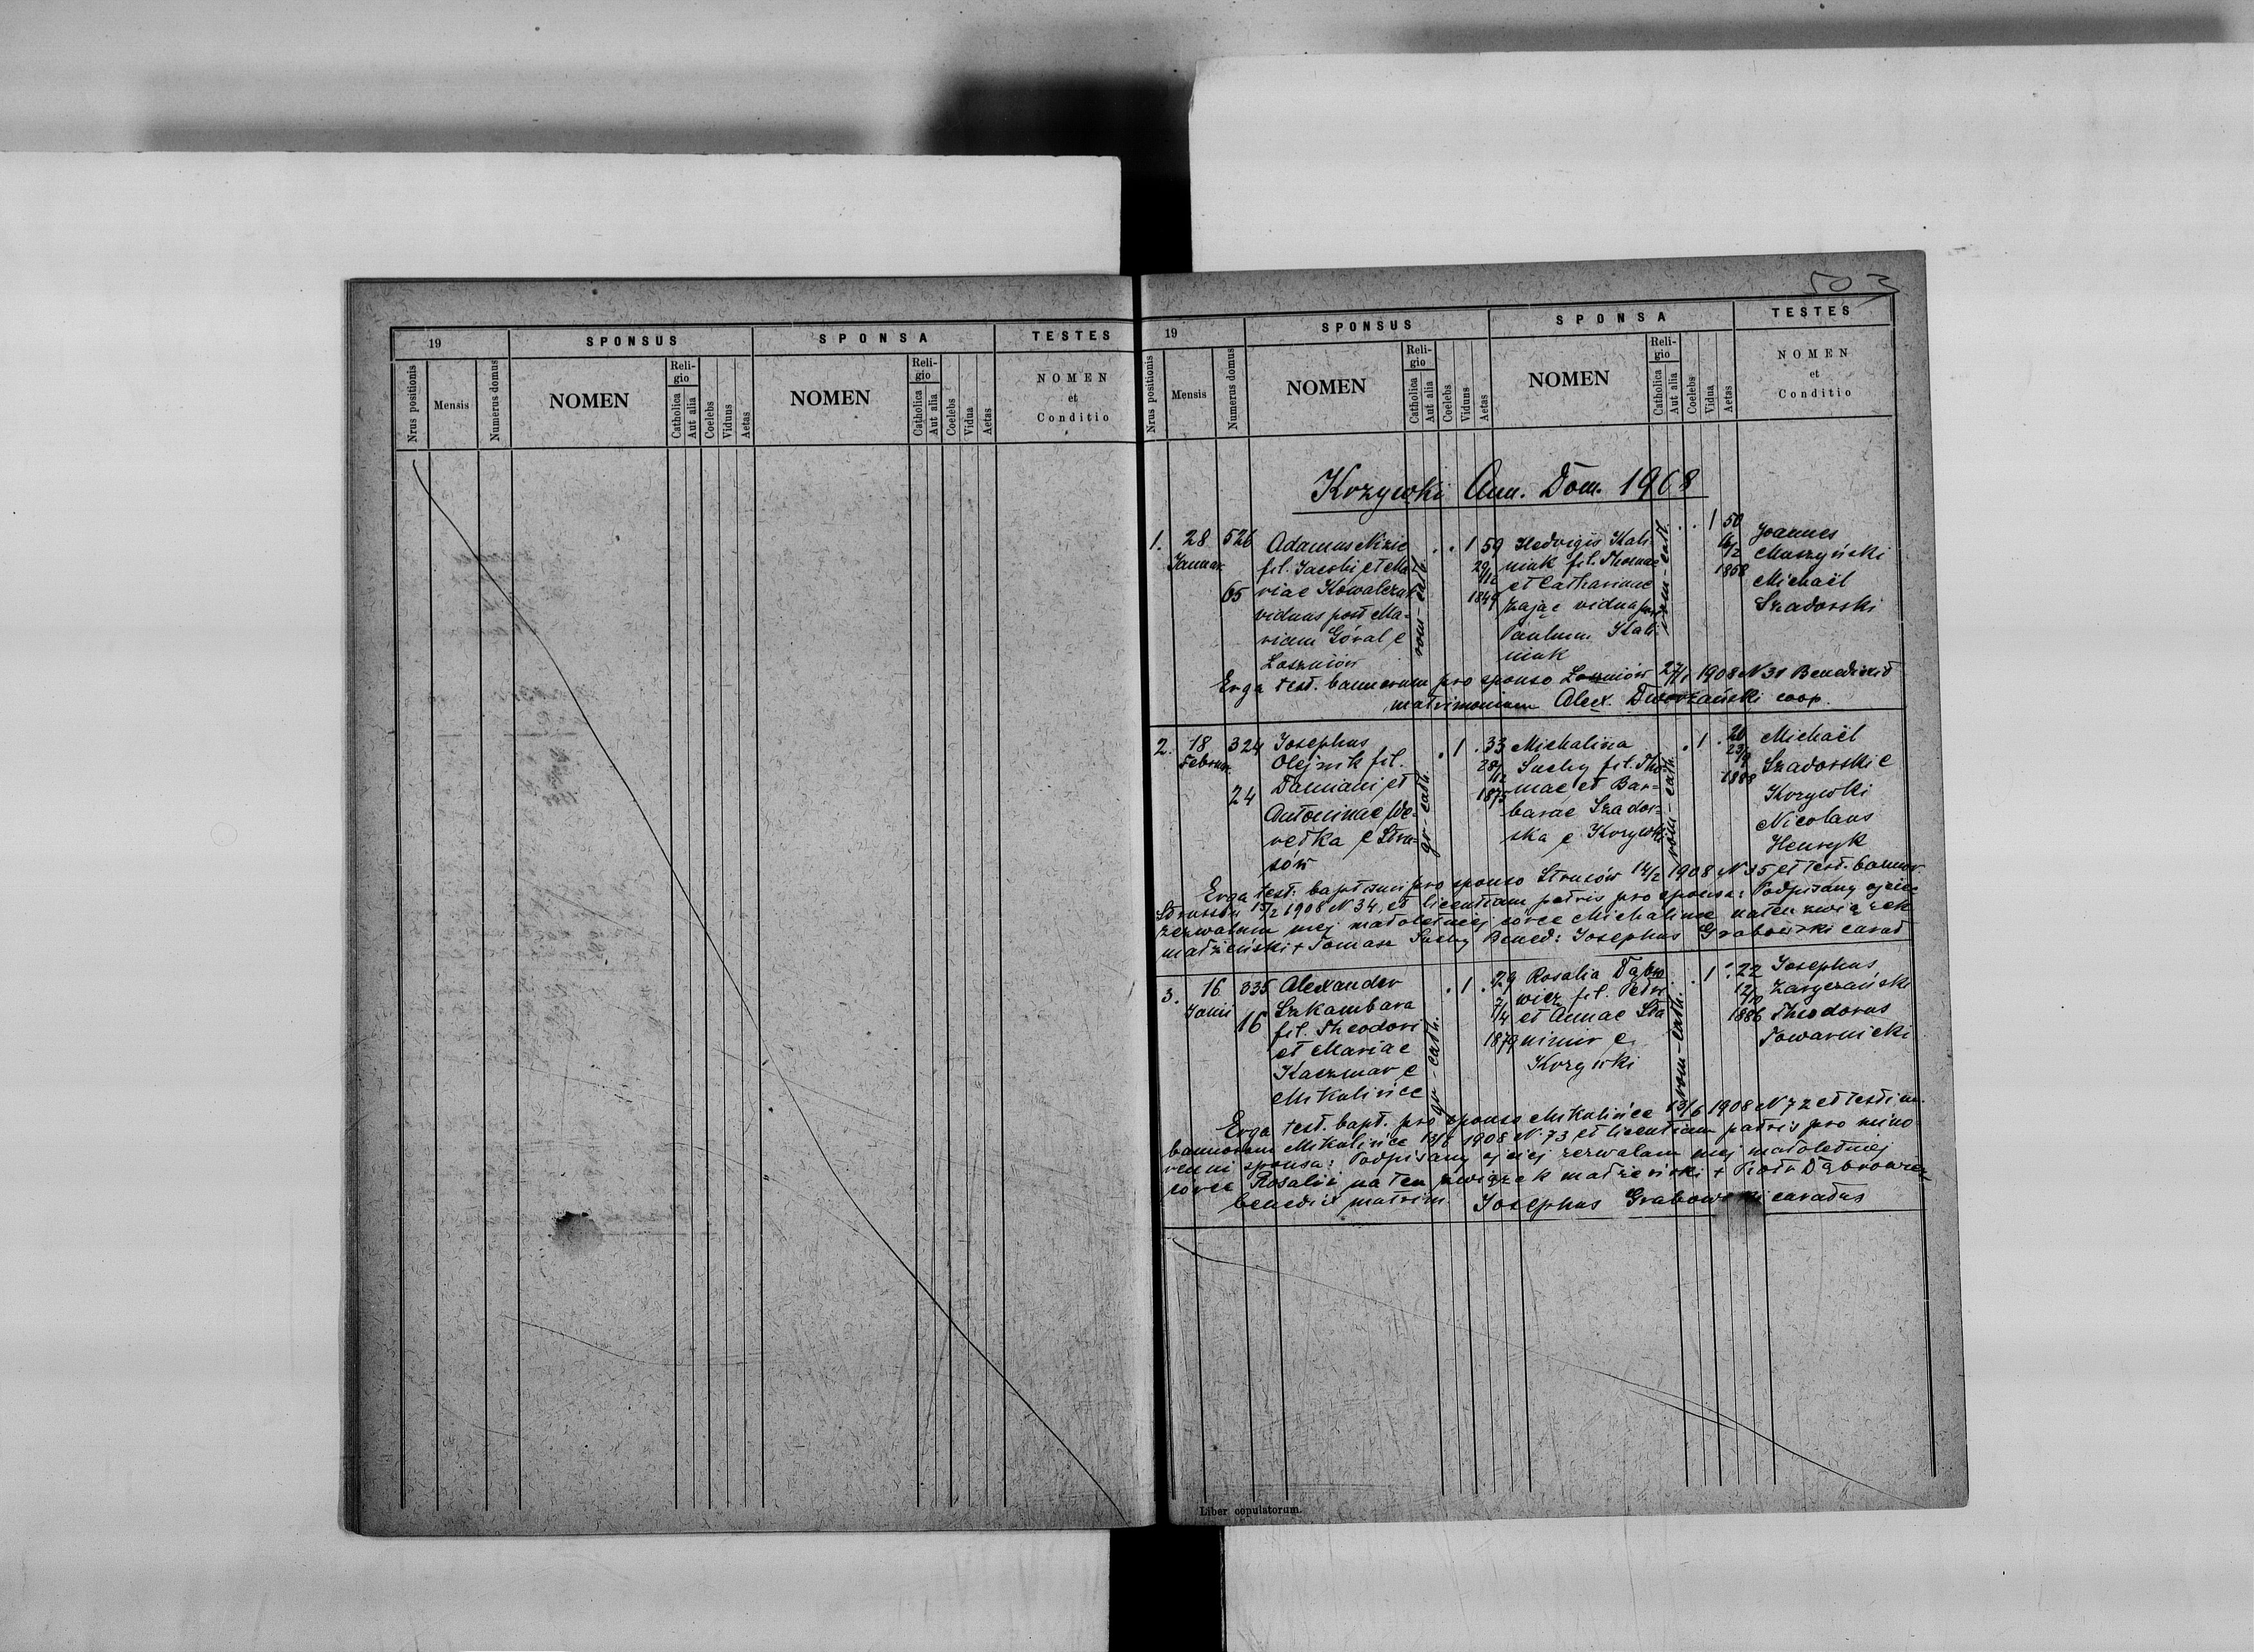 19
SPONSUS
SPONSA
TESTES
Nrus positionis
Mensis
Numerus domus
NOMEN
Religio
Catholica
Aut alia
Coelebs
Viduus
Aetas
NOMEN
Religio
Catholica
Aut alia
Coelebs
Vidua
Aetas
NOMEN
et
Conditio
503
19
SPONSUS
SPONSA
TESTES
Nrus positionis
Mensis
Numerus domus
NOMEN
Religio
Catholica
Aut alia
Coelebs
Viduus
Aetas
NOMEN
Religio
Catholica
Aut alia
Coelebs
Vidua
Aetas
NOMEN
et
Conditio
Krzywki Ann. Dom. 1908
1.
28
Januar.
526
65
Adamus Nizie
fil. Jacobi et Ma
riae Kowalczuk
viduus post Ma-
riam Góral e
Łoszniów
rom-cath.
1
59
29/12
1849
Hedvigis Kali
niuk fil. Thomae
et Catharinae
Zając vidua post
Paulum Kali
niuk
rom-cath.
1
50
1858
Joannes
Muszyński
Michaël
Szadorski
Erga test. bannorum pro sponso Łoszniów 27/1 1908 N 31 Benedixit
matrimonium Alex. Dworzański coop.
2.
18
Februar.
324
24
Josephus
Olejnik fil.
Damiani et
Antoninae We-
retka e Stru-
sów
gr cath.
1
33
28/12
1875
Michalina
Suchy fil. Tho
mae et Bar-
barae Szador-
ska e Krzywki
rom-cath.
1
20
1888
Michaël
Szadorski e
Krzywki
Nicolaus
Henryk
Erga test. baptismi pro sponso Strusów 14/2 1908 N 35 et test. bannor.
Strussów 15/2 1908 N 34, et licentiam patris pro sponsa: Podpisany ojciec
zezwalam mej małoletniej córce Michalinie na ten związek
małżeński + Tomasz Suchy Bened: Josephus Grabowski curat
3.
16
Junii
335
16
Alexander
Szkambara
fil. Theodori
et Mariae
Kaczmar e
Mikulińce
gr-cath.
1
29
7/4
1879
Rosalia Dąbro
wicz fil. Petri
et Annae Sta
nimir e
Krzywki
rom-cath.
1
22
12/10
1886
Josephus
Zarzezański
Theodorus
Towarnicki
Erga test. bapt. pro sponso Mikulińce 13/6 1908 N 72 et testim.
bannorum Mikulińce 13/6 1908 N. 73 et licentiam patris pro mino
renni sponsa: Podpisany ojciej zezwalam mej małoletniej
córce Rosalii na ten związek małżeński + Piotr Dąbrowicz
benedix matrim. Josephus Grabowski curatus
Liber copulatorum.